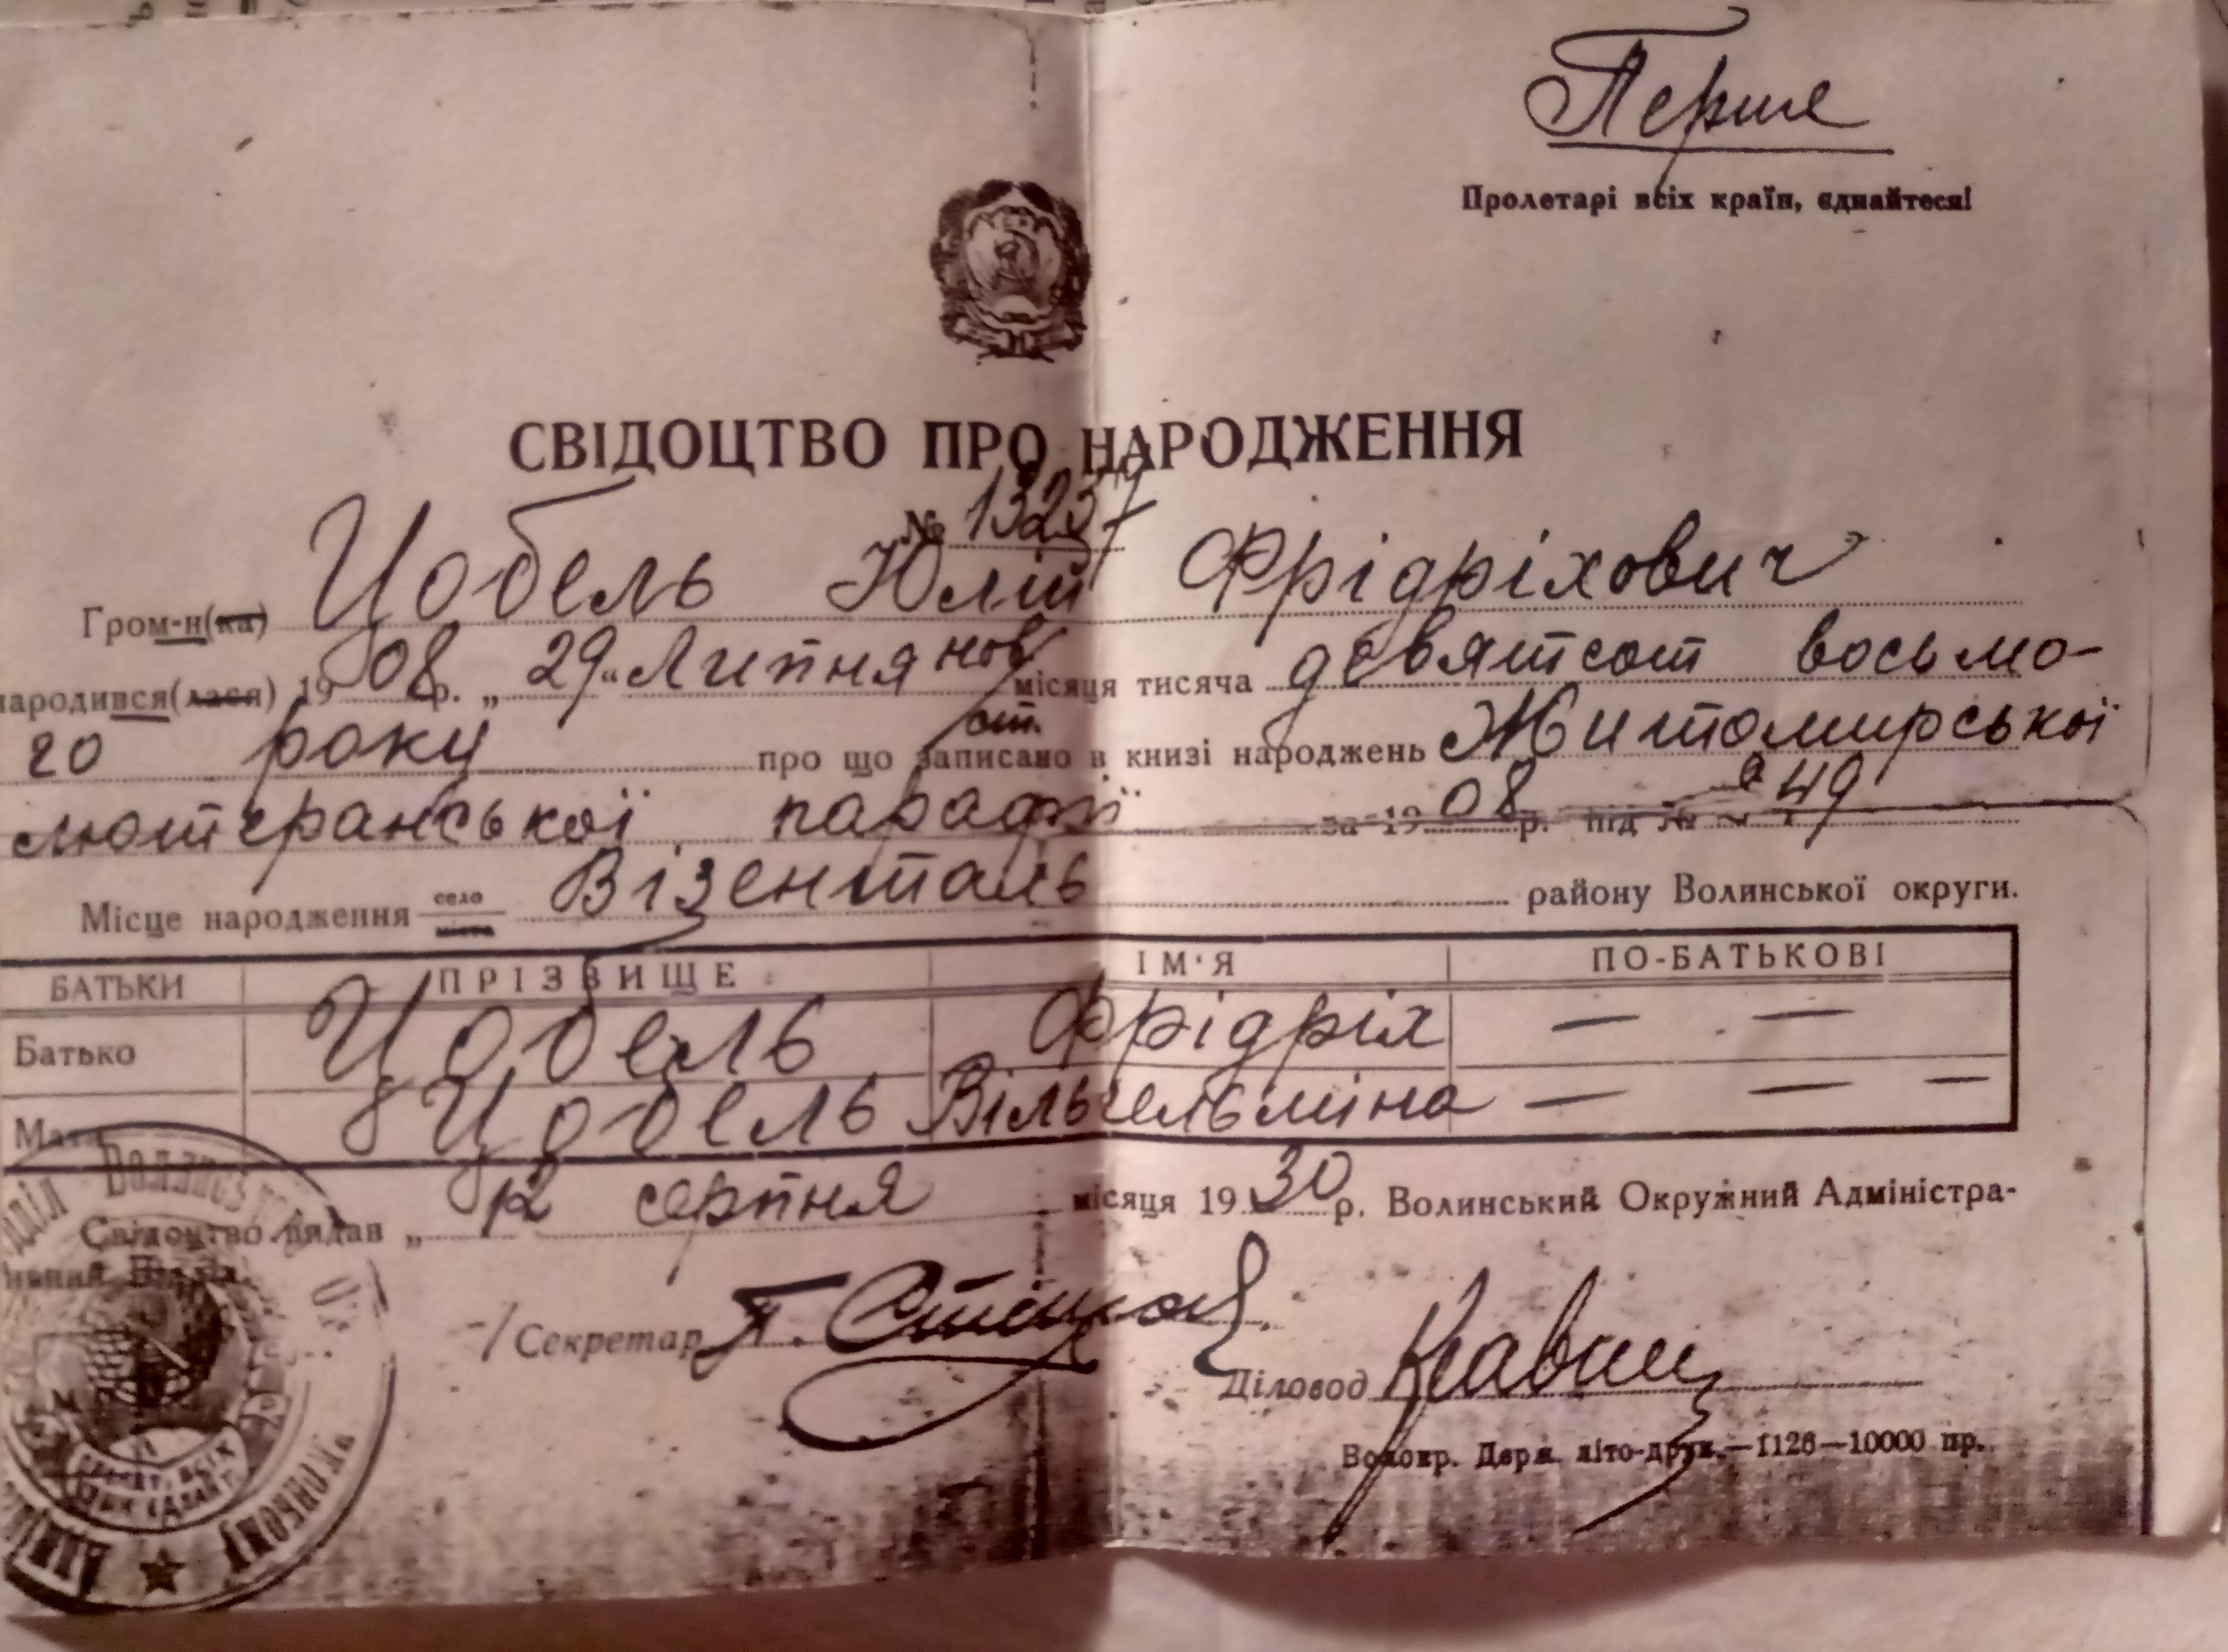 Перше
Пролетарі всіх країн, єднайтеся!
СВІДОЦТВО ПРО НАРОДЖЕННЯ
№ 13237
Гром-н(ка) Цобель Юлій Фрідріхович
народився(лася) 1908 р. „29“ Липня нов/ст. місяця тисяча девятсот восьмо-
го року про що записано в книзі народжень Житомирської
лютеранської парафії за 1908 р. під № 949
Місце народження село міста Візенталь району Волинської округи.
БАТЬКИ ПРІЗВИЩЕ ІМ'Я ПО-БАТЬКОВІ
Батько Цобель Фрідріх — —
Мати Цобель Вільгельміна — — —
Свідоцтво видав „12 серпня місяця 1930 р. Волинський Окружний Адміністра-
Відділ
Секретар П.
Діловод
Волокр. Держ. літо-друк.—1126—10000 пр.